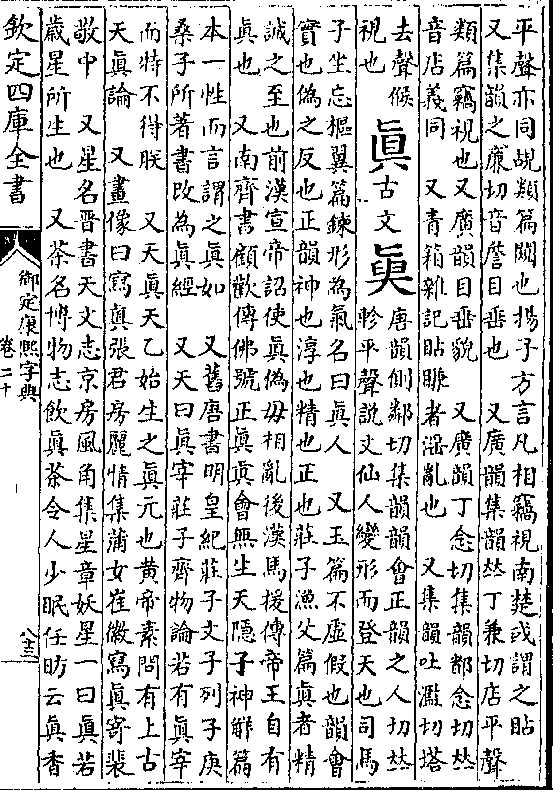 平聲亦同覘類篇闚也揚子方言凡相竊視南楚或謂之貼
又集韻之廉切音詹目垂也　又廣韻集韻𠀤丁兼切店平聲
類篇竊視也又廣韻目垂貌　又廣韻丁念切集韻都念切𠀤
音店義同　又青箱雜記貼䁠者淫亂也　又集韻吐濫切塔
去聲候
視也
眞古文𠔧
唐韻側鄰切集韻韻會正韻之人切𠀤
軫平聲說文仙人變形而登天也司馬
子坐忘樞翼篇鍊形為氣名曰眞人　又玉篇不虛假也韻會
實也偽之反也正韻神也淳也精也正也莊子漁父篇眞者精
誠之至也前漢宣帝詔使眞偽毋相亂後漢馬援傳帝王自有
眞也　又南齊書顧歡傳佛號正眞眞會無生天隱子神解篇
本一性而言謂之眞如　又舊唐書明皇紀莊子文子列子庚
桑子所著書改為眞經　又天曰眞宰莊子齊物論若有眞宰
而特不得朕　又天眞天乙始生之眞元也黃帝素問有上古
天眞論　又畫像曰寫眞張君房麗情集蒲女崔徽寫眞寄裴
敬中　又星名晉書天文志京房風角集星章妖星一曰眞若
歲星所生也　又茶名博物志飲眞茶令人少眠任昉云眞香
欽定四庫全書
御定康熙字典
卷二十